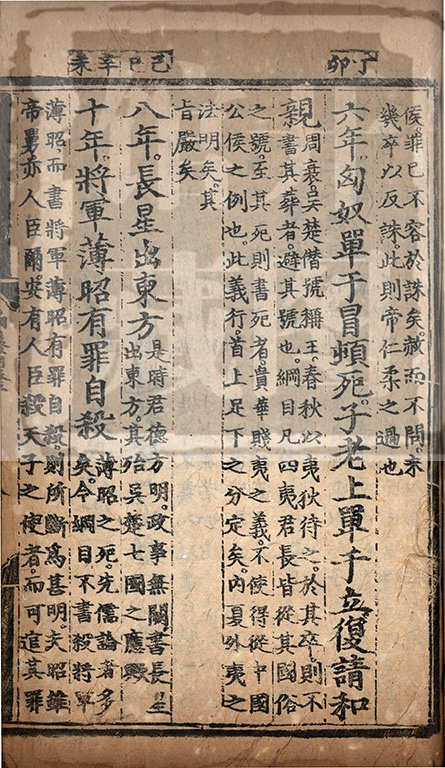 丁卯
侯。罪已不容於誅矣。赦而不問。未
幾卒以反誅。此則帝仁柔之過也
六年匈奴單于冒頓死。子老上單于立復請和
親
周衰。吳楚僭號稱王。春秋以夷狄待之。於其卒。則不
書其葬者。避其號也。綱目凡四夷君長皆從其國俗
之號。至其死則書死者。貴華賤夷之義。不使得從中國
公侯之例也。此義行。首上足下之分定矣。內夏外夷之
注明矣。其
旨嚴矣
己巳
八年。長星出東方
是時君德方明。政事無闕。書長星
出東方。其殆吳楚七國之應歟
辛未
十年。將軍薄昭有罪自殺
薄昭之死。先儒論著多
矣。今綱目不書殺將軍
薄昭而書將軍薄昭有罪自殺。則所斷爲甚明。夫昭雖
帝舅亦人臣爾。安有人臣殺天子之使者。而可逭其罪